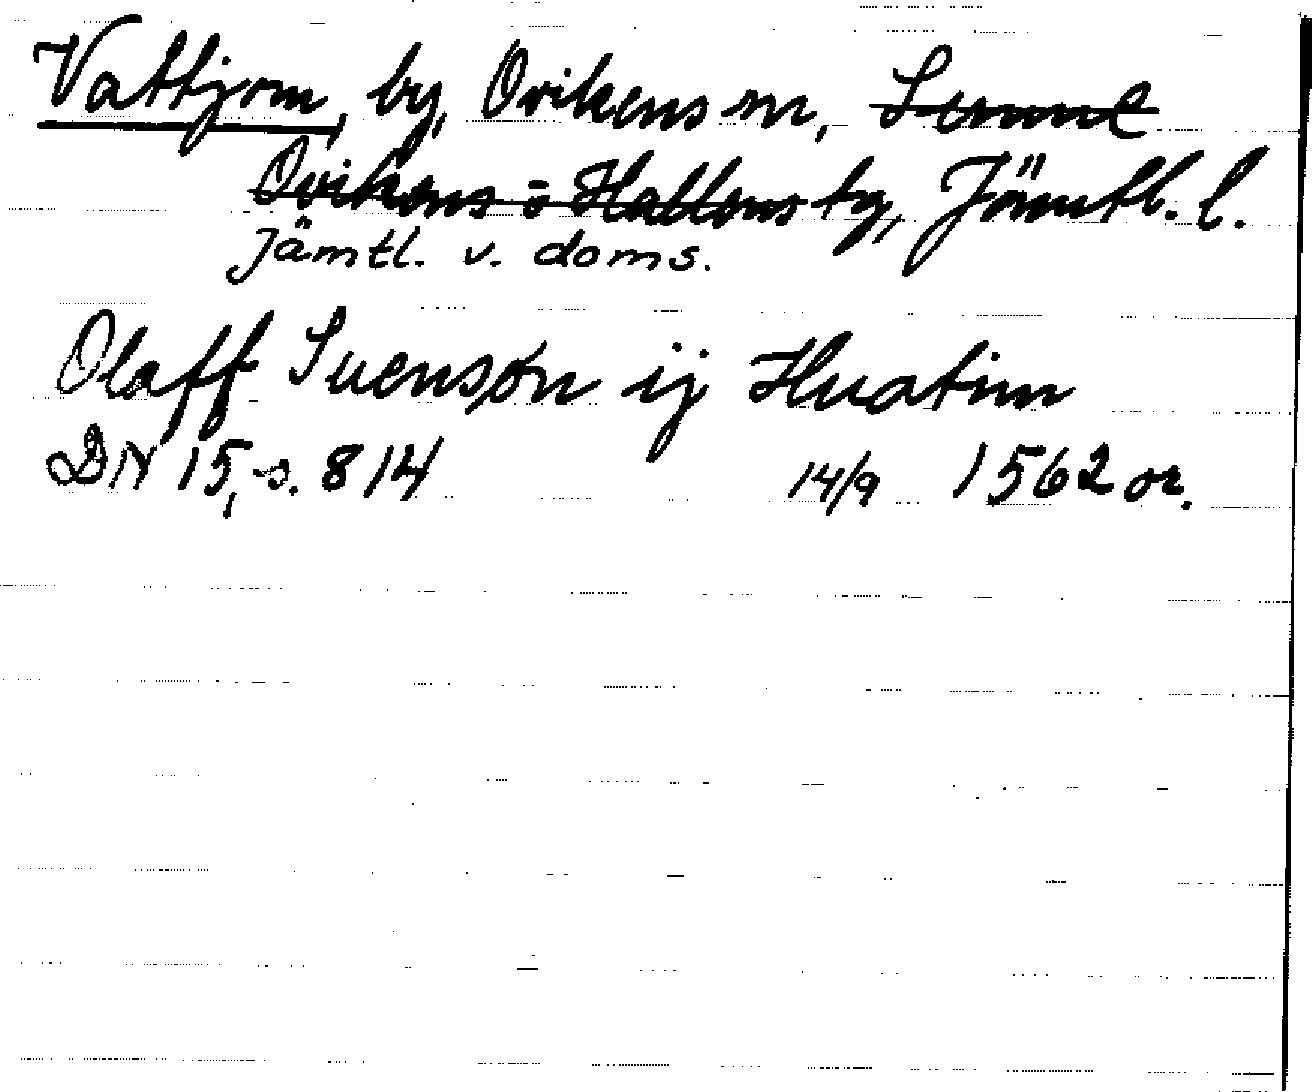 Vattjom, by, Ovikens sn, Sunne
Ovikens o Hallens tg, Jämtl. l.
Jämtl. v. doms.
Olaff Suensøn ij Huatim
DN 15, s. 814 14/9 1562 or.